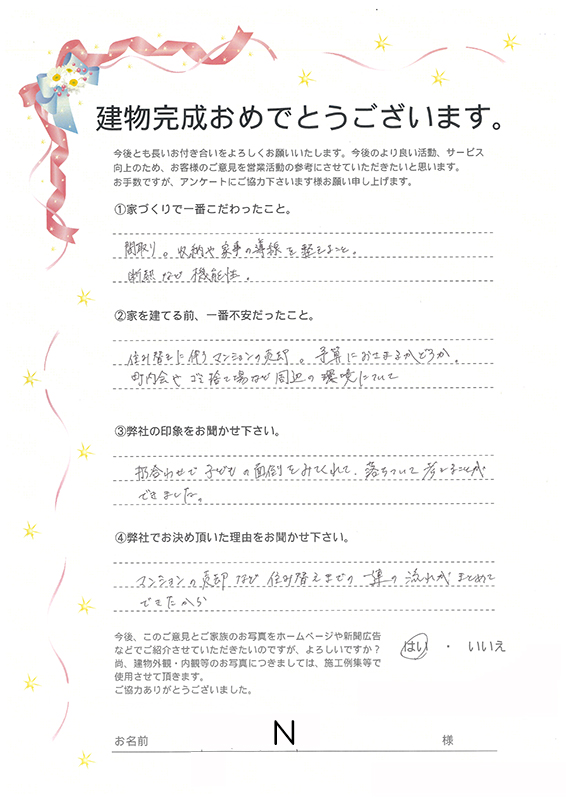 建物完成おめでとうございます。
今後とも長いお付き合いをよろしくお願いいたします。今後のより良い活動、サービス
向上のため、お客様のご意見を営業活動の参考にさせていただきたいと思います。
お手数ですが、アンケートにご協力下さいます様お願い申し上げます。
①家づくりで一番こだわったこと。
間取り。収納や家事の導線を整えること。
断熱など機能性。
②家を建てる前、一番不安だったこと。
住み替えに伴うマンションの売却。予算におさまるかどうか。
町内会やゴミ捨て場など周辺の環境について
③弊社の印象をお聞かせ下さい。
打合わせで子どもの面倒をみてくれて、落ちついて考えることが
できました。
④弊社でお決め頂いた理由をお聞かせ下さい。
マンションの売却など住み替えまでの一連の流れがまとめて
できたから
今後、このご意見とご家族のお写真をホームページや新聞広告
などでご紹介させていただきたいのですが、よろしいですか？
はい ・ いいえ
尚、建物外観・内観等のお写真につきましては、施工例集等で
使用させて頂きます。
ご協力ありがとうございました。
お名前 N 様